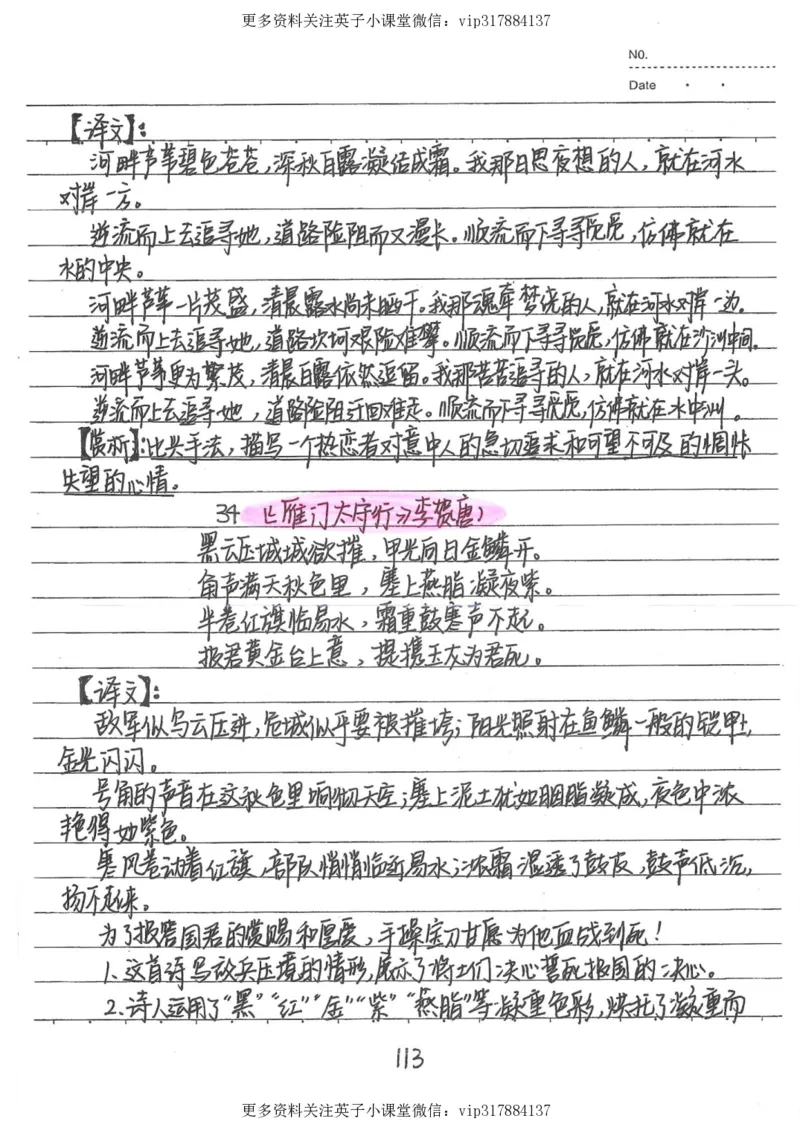 更多资料关注英子小课堂微信：vip317884137
NO.
Date
【译文】：
河畔芦苇碧色苍苍，深秋白露凝结成霜。我那日思夜想的人，就在河水
对岸一方。
逆流而上去追寻她，道路险阻而又漫长。顺流而下寻寻觅觅，仿佛就在
水的中央。
河畔芦苇一片茂盛，清晨露水尚未晒干。我那魂牵梦绕的人，就在河水对岸一边。
逆流而上去追寻她，道路坎坷艰险难攀。顺流而下寻寻觅觅，仿佛就在沙洲中间。
河畔芦苇更为繁茂，清晨白露依然逗留。我那苦苦追寻的人，就在河水对岸一头。
逆流而上去追寻她，道路险阻迂回难走。顺流而下寻寻觅觅，仿佛就在水中洲。
【赏析】：比兴手法，描写一个热恋者对意中人的急切追求和可望不可及的惆怅
失望的心情。
34 《雁门太守行》李贺（唐）
黑云压城城欲摧，甲光向日金鳞开。
角声满天秋色里，塞上燕脂凝夜紫。
半卷红旗临易水，霜重鼓寒声不起。
报君黄金台上意，提携玉龙为君死。
【译文】：
敌军似乌云压进，危城似乎要被摧垮；阳光照射在鱼鳞一般的铠甲上，
金光闪闪。
号角的声音在这秋色里响彻天空；塞上泥土犹如胭脂凝成，夜色中浓
艳得如紫色。
寒风卷动着红旗，部队悄悄临近易水；浓霜湿透了鼓皮，鼓声低沉，
扬不起来。
为了报答国君的赏赐和厚爱，手操宝刀甘愿为他血战到死！
1、这首诗写敌兵压境的情形，展示了将士们决心誓死报国的决心。
2、诗人运用了“黑”“红”“金”“紫”“燕脂”等凝重色彩，烘托了凝重而
113
更多资料关注英子小课堂微信：vip317884137